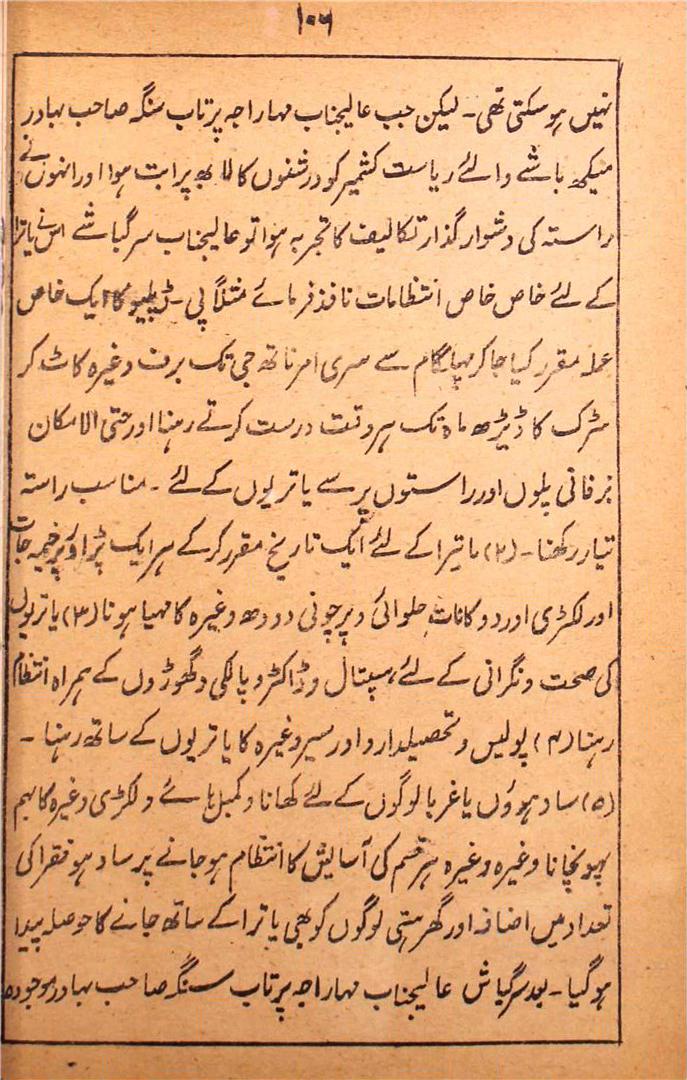 ۱۰۶
نہیں ہو سکتی تھی۔ لیکن جب عالیجناب مہاراجہ پرتاب سنگہ صاحب بہادر
بیکھ باشے والئے ریاست کشمیر کو درشنوں کا لابھ پراپت ہوا اور انہوں نے
راستہ کی دشوار گذار تکالیف کا تجربہ ہوا تو عالیجناب سرگباشے اس نے یاترا
کے لئے خاص خاص انتظامات نافذ فرمائے مثلاً پی۔ ڈبلیو کا ایک خاص
عملہ مقرر کیا جا کر پہلگام سے سری امرناتھ جی تک برف وغیرہ کاٹ کر
سڑک کا ڈیڑھ ماہ تک ہر وقت درست کرتے رہنا اور حتی الامکان
برفانی پلوں اور راستوں پر سے یاتریوں کے لئے۔ مناسب راستہ
تیار رکھنا۔ (۲) یاترا کے لئے ایک تاریخ مقرر کر کے ہر ایک پڑاؤ پر خیمہ جات
اور لکڑی اور دوکانات حلوائی و پرچونی دودھ وغیرہ کا مہیا ہونا (۳) یاتریوں
کی صحت و نگرانی کے لئے ہسپتال و ڈاکٹر و پالکی و گھوڑوں کے ہمراہ انتظام
رہنا (۴) پولیس و تحصیلدار و اورسیر وغیرہ کا یاتریوں کے ساتھ رہنا۔
(۵) سادہوؤں یا غربا لوگوں کے لئے کھانا و کمبل ہائے و لکڑی وغیرہ کا بہم
پہونچانا وغیرہ وغیرہ ہر قسم کی آسایش کا انتظام ہو جانے پر سادہو فقرا کی
تعداد میں اضافہ اور گھرہستی لوگوں کو بھی یاترا کے ساتھ جانے کا حوصلہ پیدا
ہو گیا۔ بعد سرگباش عالیجناب مہاراجہ پرتاب سنگہ صاحب بہادر موجودہ